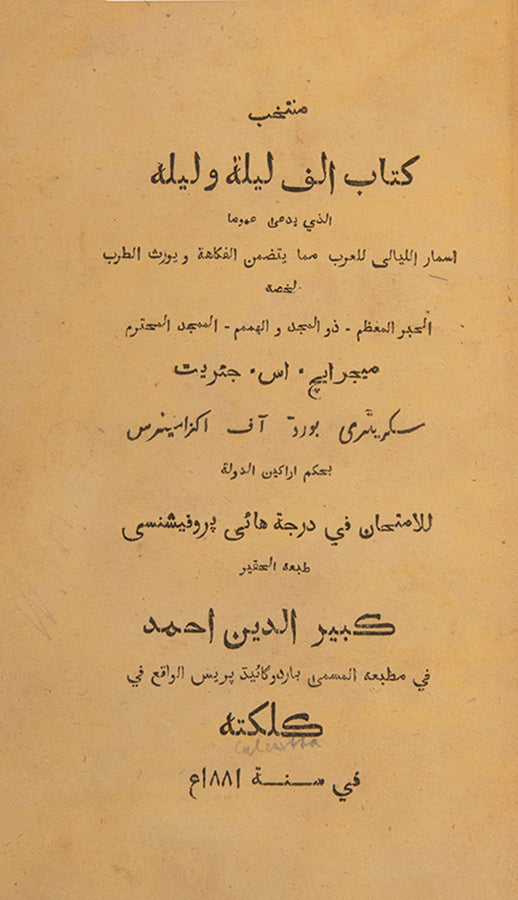 منتخب
كتاب الف ليلة و ليله
الذي يدعى عموما
اسمار الليالى للعرب مما يتضمن الفكاهة و يورث الطرب
لخصه
الحبر المعظم - ذو المجد و الهمم - الممجد المحترم
ميجر ايچ ٠ اس ٠ جئريت
سكريٹري بورڈ آف اكزامينرس
بحكم اراكين الدولة
للامتحان في درجة هائي پروفيشنسي
طبعه الحقير
كبير الدين احمد
في مطبعه المسمى باردوگائيڈ پريس الواقع في
كلكته
Calcutta
في سنة ١٨٨١ع